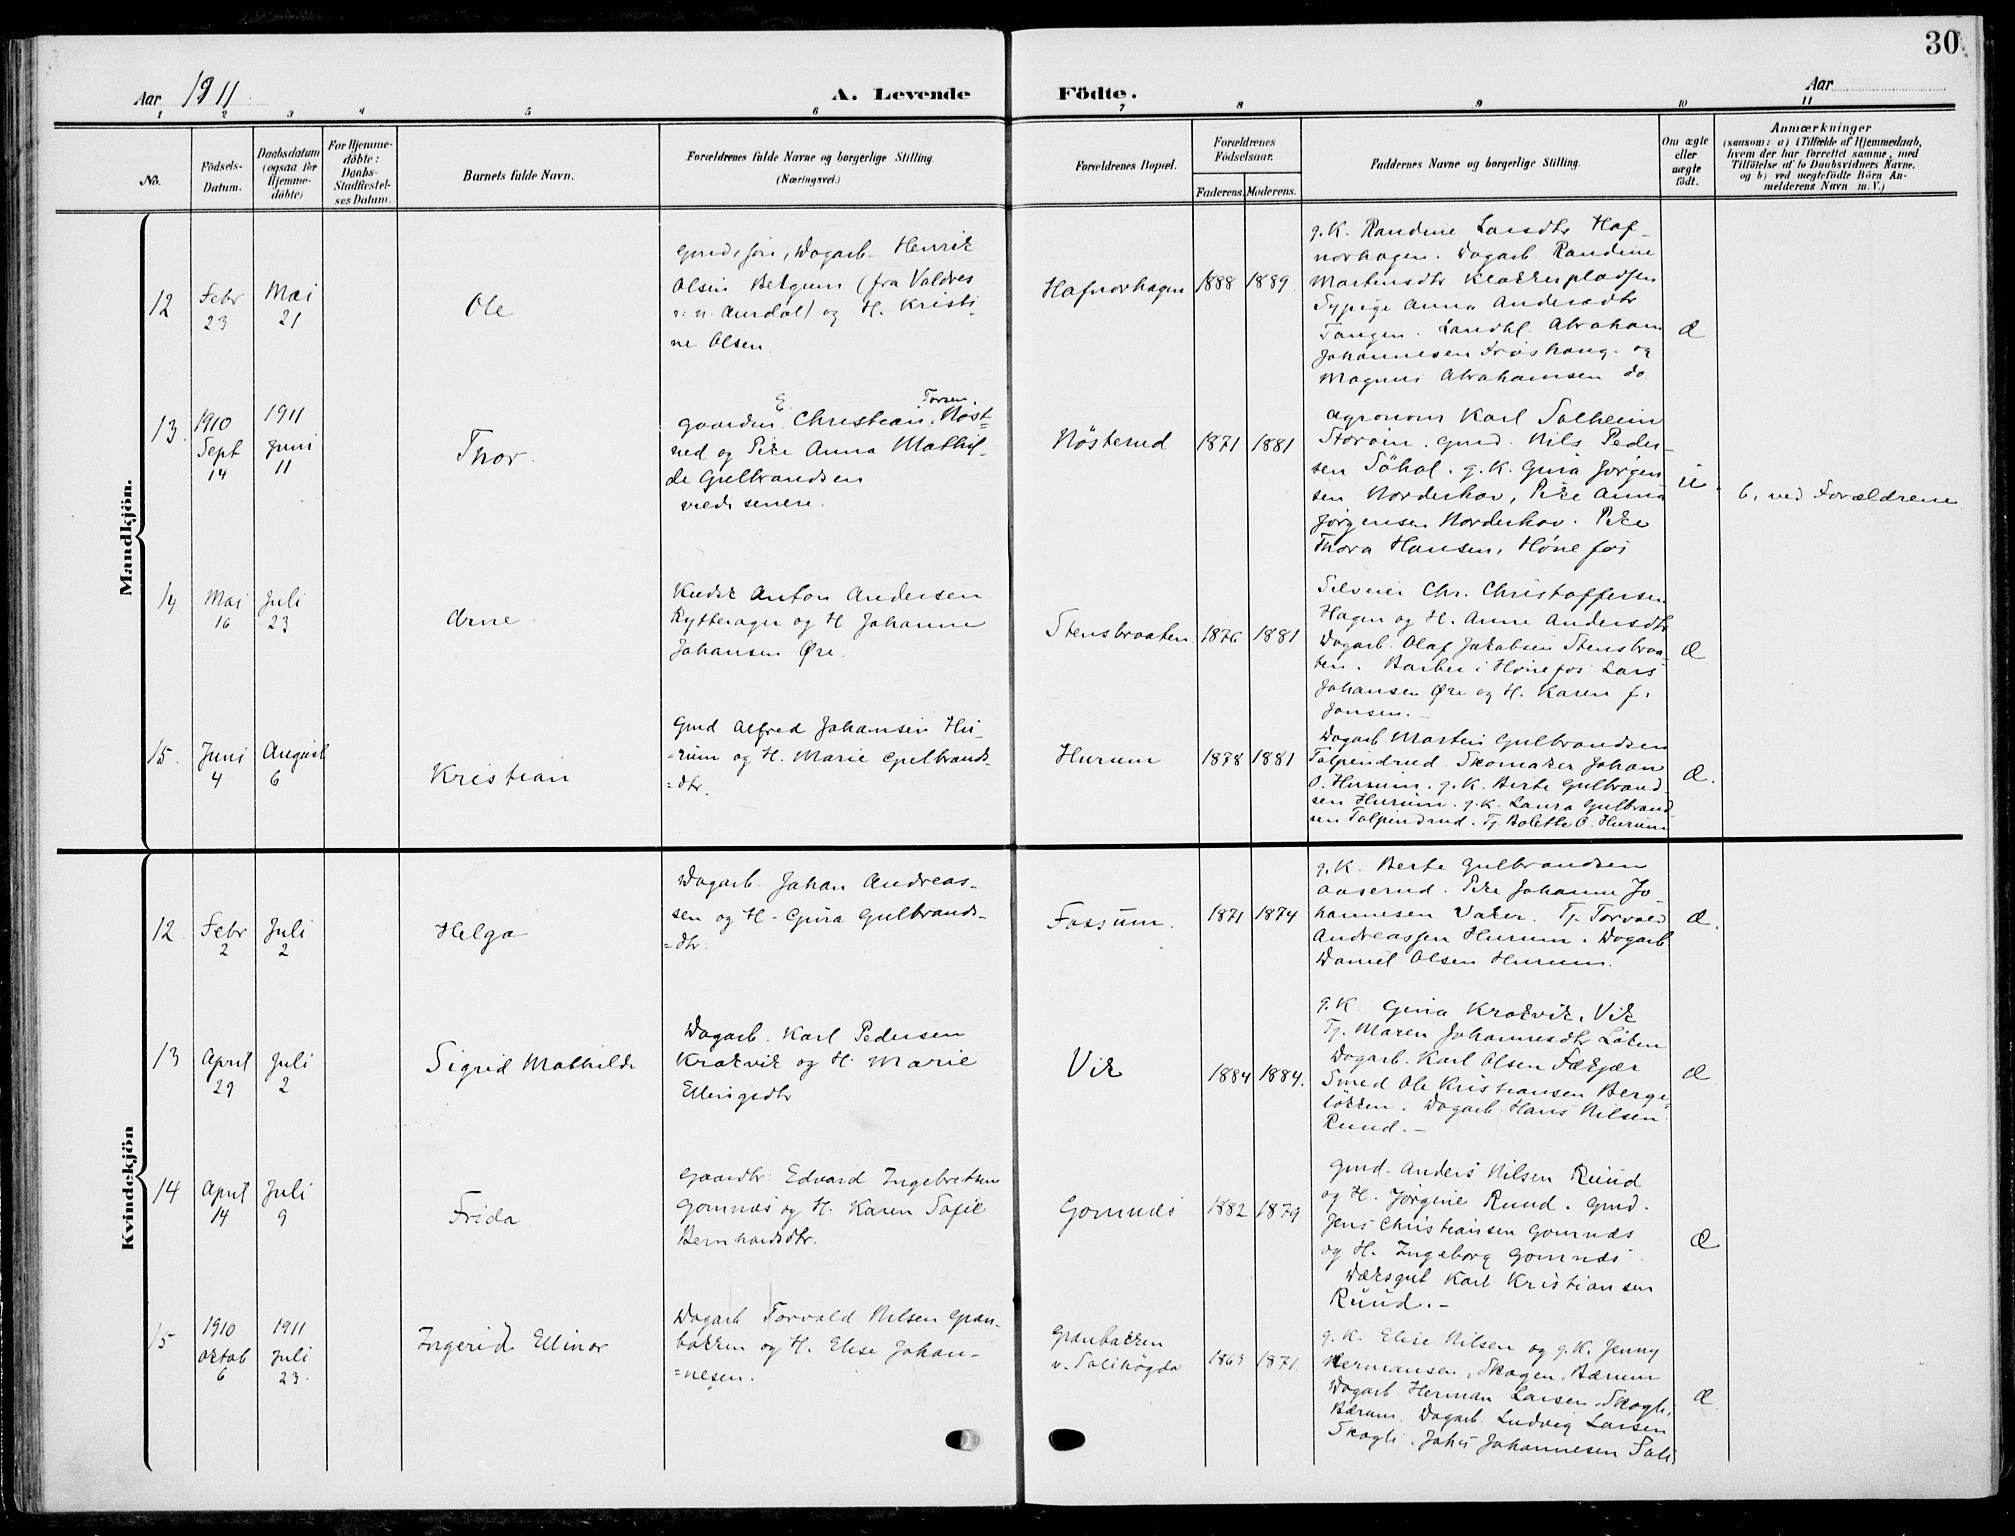 30
Aar 1911
A. Levende
Födte.
Aar
1 2 3 4 5 6 7 8 9 10 11
No.
Födsels-
Datum.
Daabsdatum
(ogsaa for
Hjemme-
døbte)
For Hjemme-
døbte:
Daabs-
Stadfæstel-
ses Datum.
Barnets fulde Navn.
Forældrenes fulde Navne og borgerlige Stilling.
(Næringsvei.)
Forældrenes Bopæl.
Forældrenes
Födselsaar.
Faderens. Moderens.
Faddernes Navne og borgerlige Stilling.
Om ægte
eller
uægte
født.
Anmærkninger
(saasom: a) i Tilfælde af Hjemmedaab,
hvem der har forrettet samme, med
Tilføielse af to Daabsvidners Navne,
og b) ved uægtefødte Börn An-
melderens Navn m. V.)
Mandkjön.
12
Febr
23
Mai
21
Ole
Dagarb. Henrik
Olsen Bergum (fra Valdres
Aurdal) og H. Kristi-
ne Olsen.
Hafnorhagen
1888
1889
g. K. Randine Larsdtr Haf-
norhagen. Dagarb. Randine
Martensdtr Klokkerpladsen
Sypige Anna Andersdtr
Tangen. Landhl. Abraham
Johannesen Frøshaug. og
Magnus Abrahamsen do.
Æ
13.
1910
Sept
14
1911
Juni
11
Thor.
Gaardm. E. Christian Torsen. Nöst=
rud og Pike Anna Mathil-
de Gulbrandsen
viede senere.
Nösterud
1871
1881
Agronom Karl Solheim
Storøin. Gmd. Nils Peder-
sen Söhol. g. K. Gina Jørgen-
sen Norderhov, Pike Anna
Jørgensen Norderhov. Pike
Thora Hansen, Hønefos
u.
b, ved Forældrene.
14
Mai
16
Juli
23
Arne.
Kudsk Anton Andersen
Rytterager og H. Johanne
Johansen Øre.
Stensbraaten
1876
1881
Chr. Christoffersen
Hagen og H. Anne Andersdtr
Dagarb. Olaf Jakobsen Stensbraa-
ten. Barber i Hønefos Lars
Johansen Øre og H. Karen f.
Jonsen.-
Æ
15.
Juni
4
August
6
Kristian
Gmd Alfred Johansen Hu-
=rum og H. Marie Gulbrands-
=dtr.
Hurum
1878
1881
Dagarb Martin Gulbrandsen
Tolpinrud. Skomaker Johan
O. Hurum. g. K. Berte Gulbrand-
sen Hurum. g. K. Laura Gulbrand-
sen Tolpinrud. Tj. Bolette O. Hurum
Æ.
Kvindekjön
12.
Febr
2
Juli
2
Helga
Dagarb. Johan Andreas-
sen og H. Gina Gulbrands-
=dtr.
Fossum.
1871
1874
g. K. Berte Gulbrandsen
Aaserud. Pike Johanne Jo-
hannesen Vaker. Tj. Torvald
Andreassen Hurum. Dagarb.
Daniel Olsen Hurum.
Æ.
13
April
29
Juli
2
Sigrid Mathilde
Dagarb. Karl Pedersen
Krokvik og H. Marie
Ellingsdtr
Vik
1884
1884.
g. K. Gina Krokvik, Vik
Tj. Maren Johannesdtr Löken
Dagarb. Karl Olsen Fækjær
Smed Ole Kristiansen Berge-
løkken. Dagarb. Hans Nilsen
Ruud.-
Æ
14
April
14
Juli
9
Frida
Gaardbr. Edvard Ingebretsen
Gomnæs og H. Karen Sofie
Bernhardsdtr.
Gomnæs
1882
1879
Gmd. Anders Nilsen Ruud
og H. Jørgine Ruud. Gmd.
Jens Christiansen Gomnæs
og H. Ingeborg Gomnæs.
Karl Kristiansen
Ruud.-
Æ
15
1910
Oktob
6
1911
Juli
23.
Ingerid Ellinor
Dagarb Torvald Nilsen Gran-
bakken og H. Elise Johan-
=nesen.
Granbakken
v. Solihøgda
1863
1871.
g. K. Elise Nilsen og g. K. Jenny
Hermansen, Skogen, Bærum
Dagarb. Herman Larsen, Skogli,
Bærum. Dagarb. Ludvig Larsen
Skogli. Johs Johannesen Soli.
Æ.